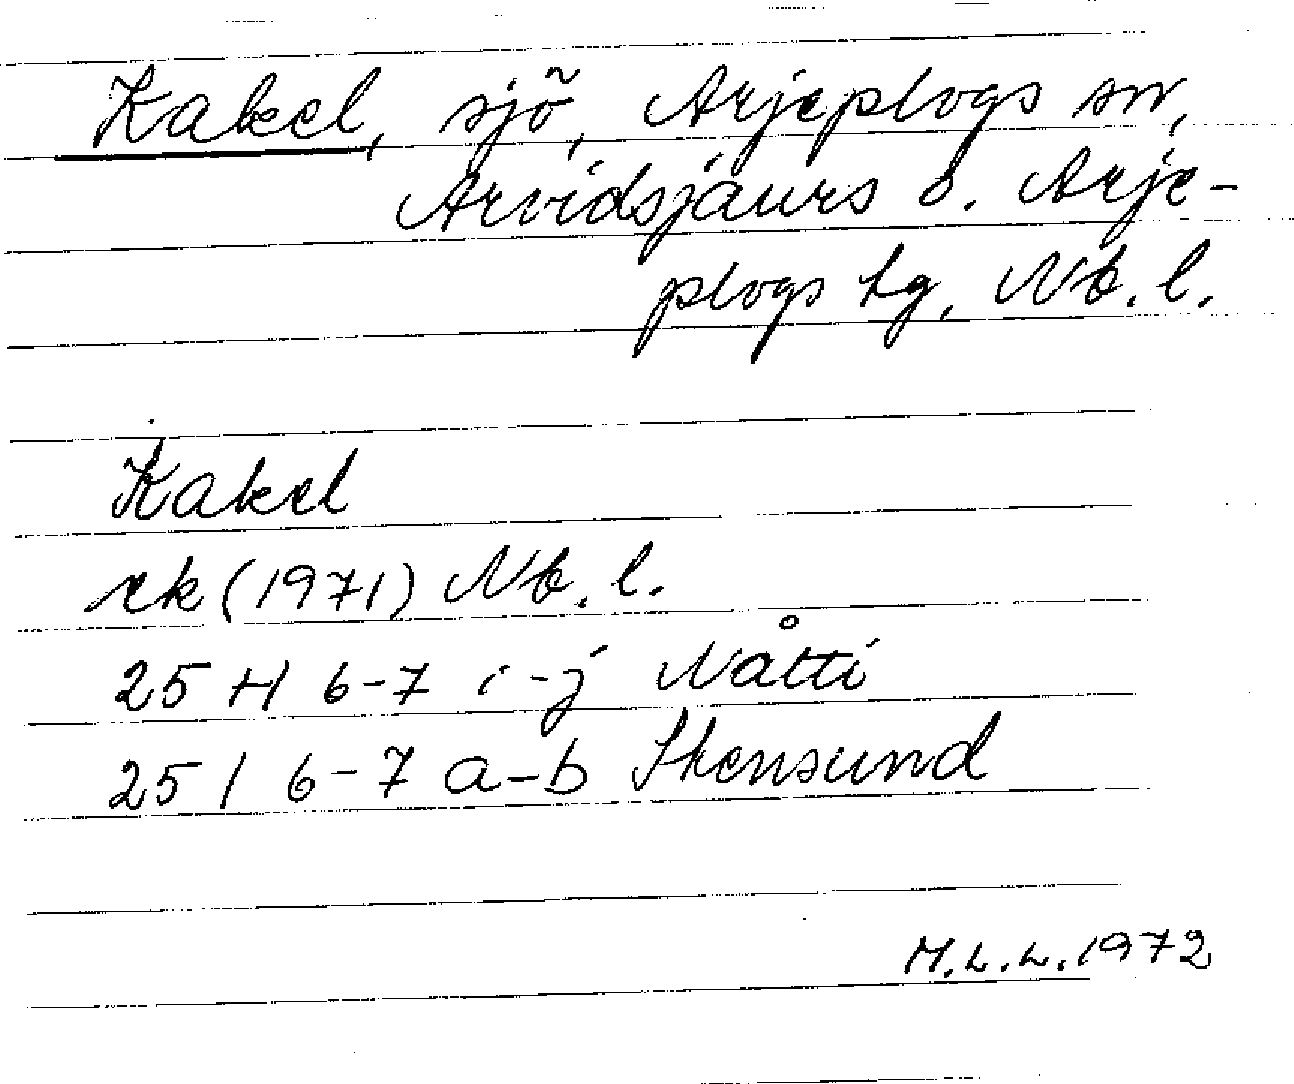 Kakel, sjö, Arjeplogs sn,
Arvidsjaurs o. Arje-
plogs tg, Nb. l.
Kakel
ek (1971) Nb. l.
25 H 6-7 i-j Nåtti
25 I 6-7 a-b Stensund
M.L.L. 1972